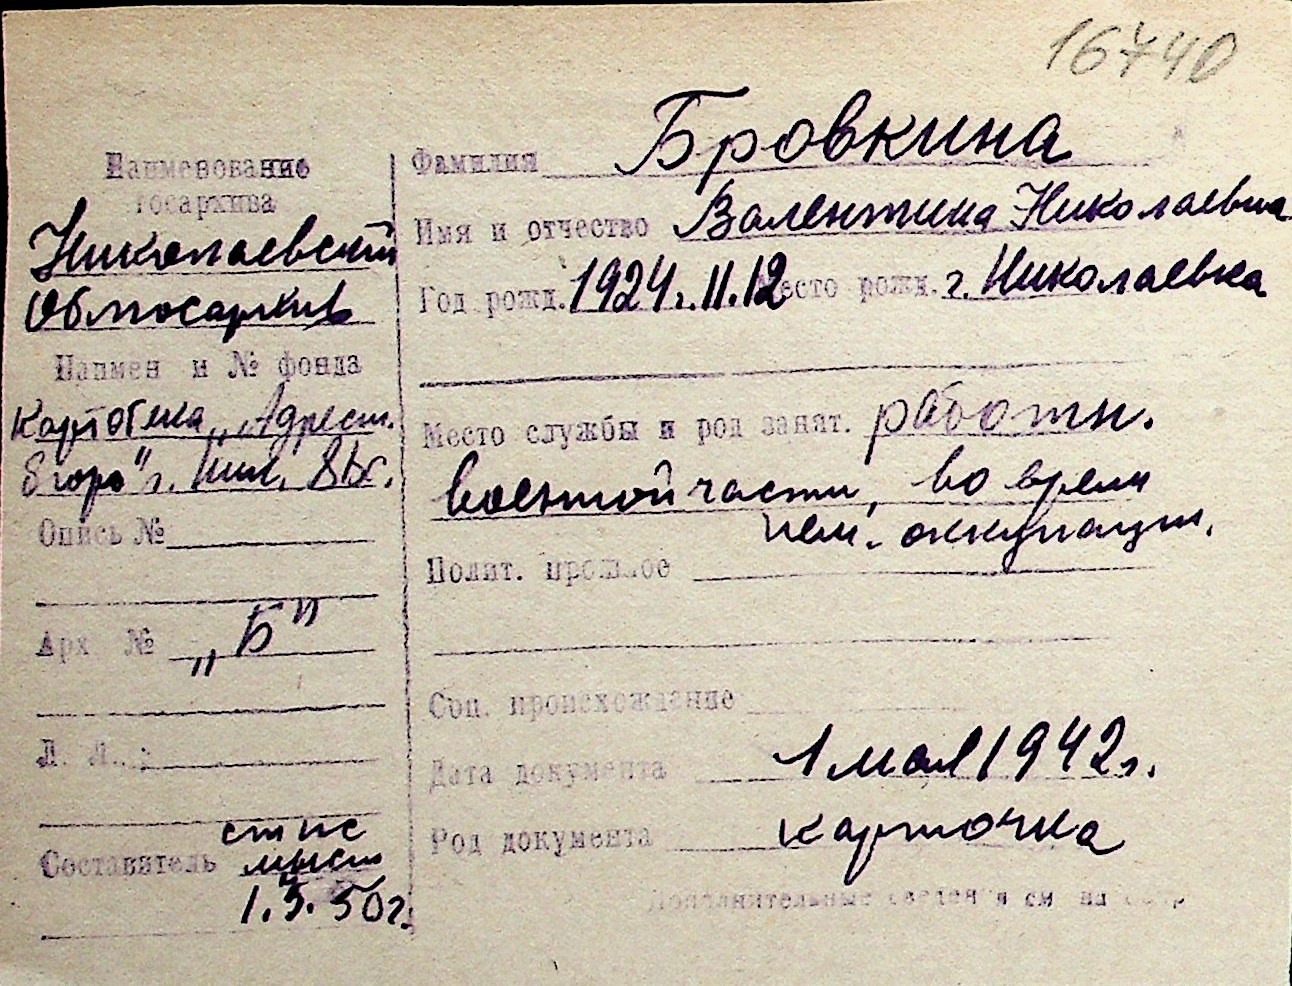 16740
Наименование
госархива
Николаевский
Облгосархив
Наимен и № фонда
Картотека „Адресн.
бюро" г. Ник.
Опись №
Арх № „Б"
Л. Л.
Составитель
1.3.50г.
Фамилия Бровкина
Имя и отчество Валентина Николаевна
Год рожд. 1924г. II.12 Место рожд. г. Николаевка
Место службы и род занят. работн.
военной части, во время
нем. оккупации.
Полит. прошлое
Соц. происхождение
Дата документа 1 мая 1942г.
Род документа карточка
Дополнительные сведения см на обор.